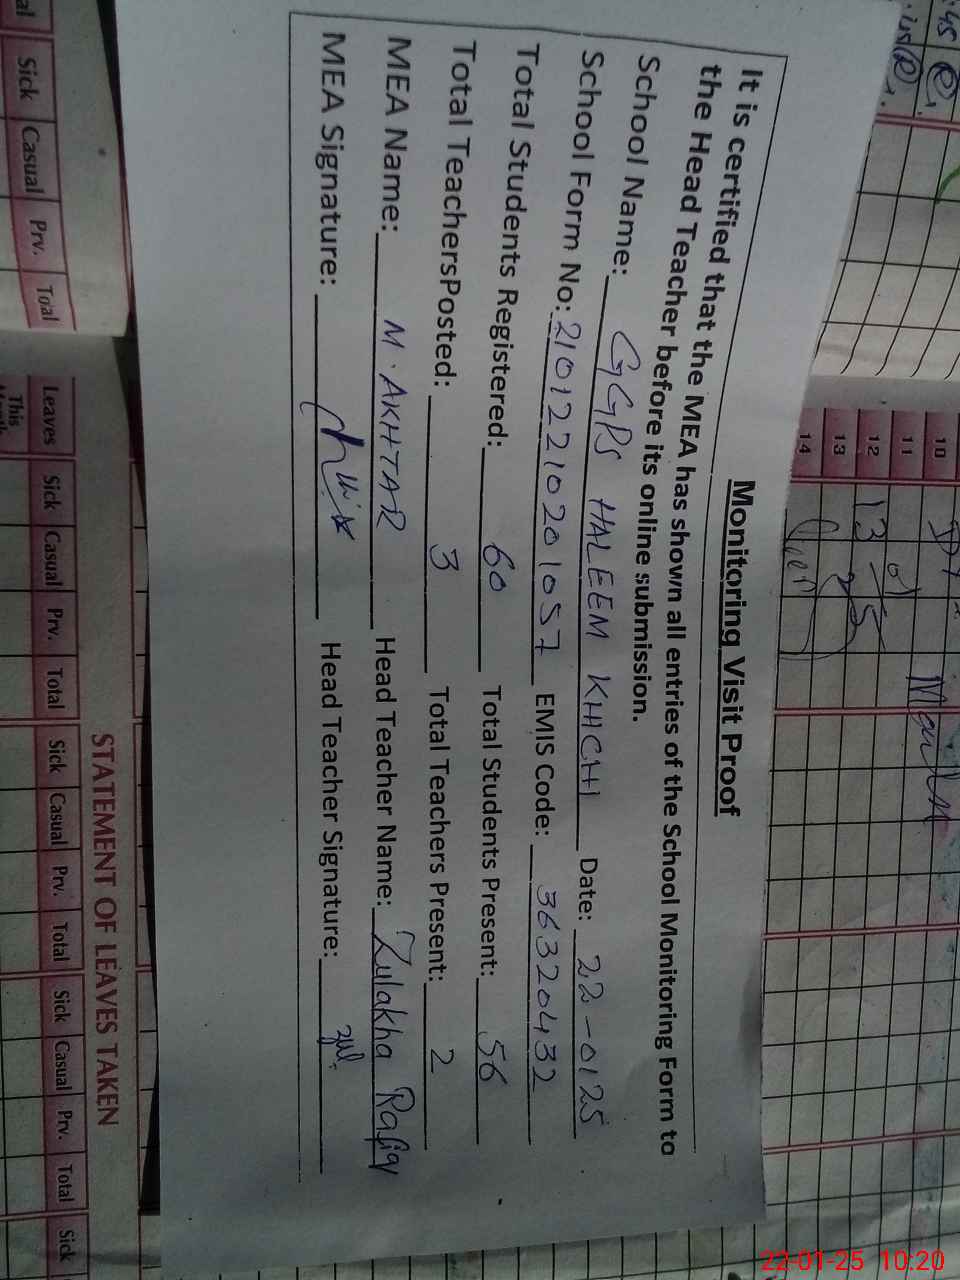 Monitoring Visit Proof
It is certified that the MEA has shown all entries of the School Monitoring Form to
the Head Teacher before its online submission.
School Name: GGPS HALEEM KHICHI Date: 22-0125
School Form No: 21012210201057 EMIS Code: 36320432
Total Students Registered: 60 Total Students Present: 56
Total TeachersPosted: 3 Total Teachers Present: 2
MEA Name: M. AKHTAR Head Teacher Name: Zulakha Rafiq
MEA Signature: Head Teacher Signature:
10
11
12
13
14
STATEMENT OF LEAVES TAKEN
al Sick Casual Prv. Total
Leaves Sick Casual Prv. Total Sick Casual Prv. Total Sick Casual Prv. Total Sick
This
22-01-25 10:20